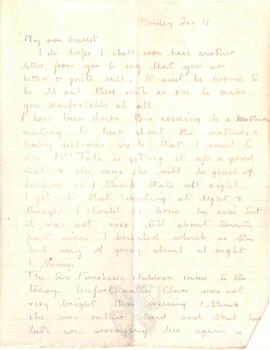 Monday Dec 11
My own dearest
I do hope I shall soon have another
letter from you to say that you are
better & quite well. It must be horrid to
be ill out there with no one to make
you comfortable at all.
I have been down this evening to a Mothers
meeting to hear about the mothers &
baby welcome work that I want to
do. Mrs is getting it up a good
deal & she says she will be glad of
helpers so I think that's all right.
I got to that meeting at eight &
thought I should be home by nine but
it was not over till about twenty
past nine. I bicycled which is the
best way of going about at night
I
The two children came to tea
today. Unfortunately was not
very bright this evening I think
she was rather tired and that her
teeth are worrying her again a